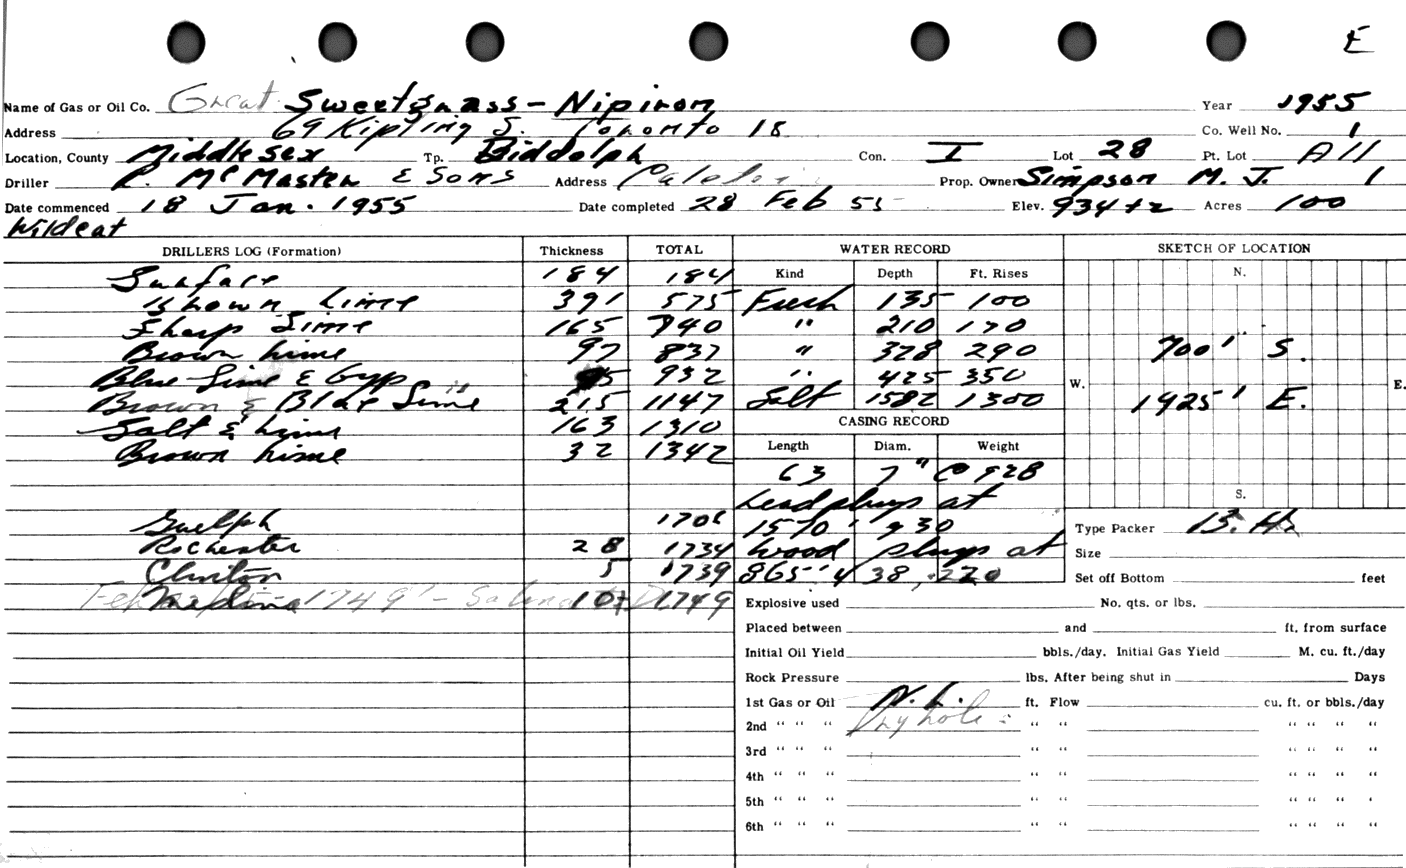 E
Name of Gas or Oil Co. Great Sweetgrass - Nipiron Year 1955
Address 69 Kipling S. Toronto 18 Co. Well No. 1
Location, County Middlesex Tp. Biddolph Con. I Lot 28 Pt. Lot All
Driller R. McMaster & Sons Address Prop. Owner Simpson M. J. 1
Date commenced 18 Jan. 1955 Date completed 28 Feb 55 Elev. 934 + 2 Acres 100
Wildcat
DRILLERS LOG (Formation) Thickness TOTAL WATER RECORD SKETCH OF LOCATION
Surface 184 184 Kind Depth Ft. Rises N.
Brown Lime 391 575 Fresh 135 100
Sharp Lime 165 740 " 210 170
Brown Lime 97 837 " 378 290 700' S.
Blue Lime & Gyp 95 932 " 425 350 W. E.
Brown & Blue Lime 215 1147 Salt 1582 1300 1925' E.
Salt & Lime 163 1310 CASING RECORD
Brown Lime 32 1342 Length Diam. Weight
63 7" @ 928
Lead plugs at S.
Guelph 1706 1570' 930 Type Packer B. H.
Rochester 28 1734 Wood plugs at Size
Clinton 5 1739 865' 438, 220 Set off Bottom feet
Medina 10 1749 Explosive used No. qts. or lbs.
Placed between and ft. from surface
Initial Oil Yield bbls./day. Initial Gas Yield M. cu. ft./day
Rock Pressure lbs. After being shut in Days
1st Gas or Oil N. L. ft. Flow cu. ft. or bbls./day
2nd " " " Dry hole " " " " " "
3rd " " " " " " " " "
4th " " " " " " " " "
5th " " " " " " " " "
6th " " " " " " " " "